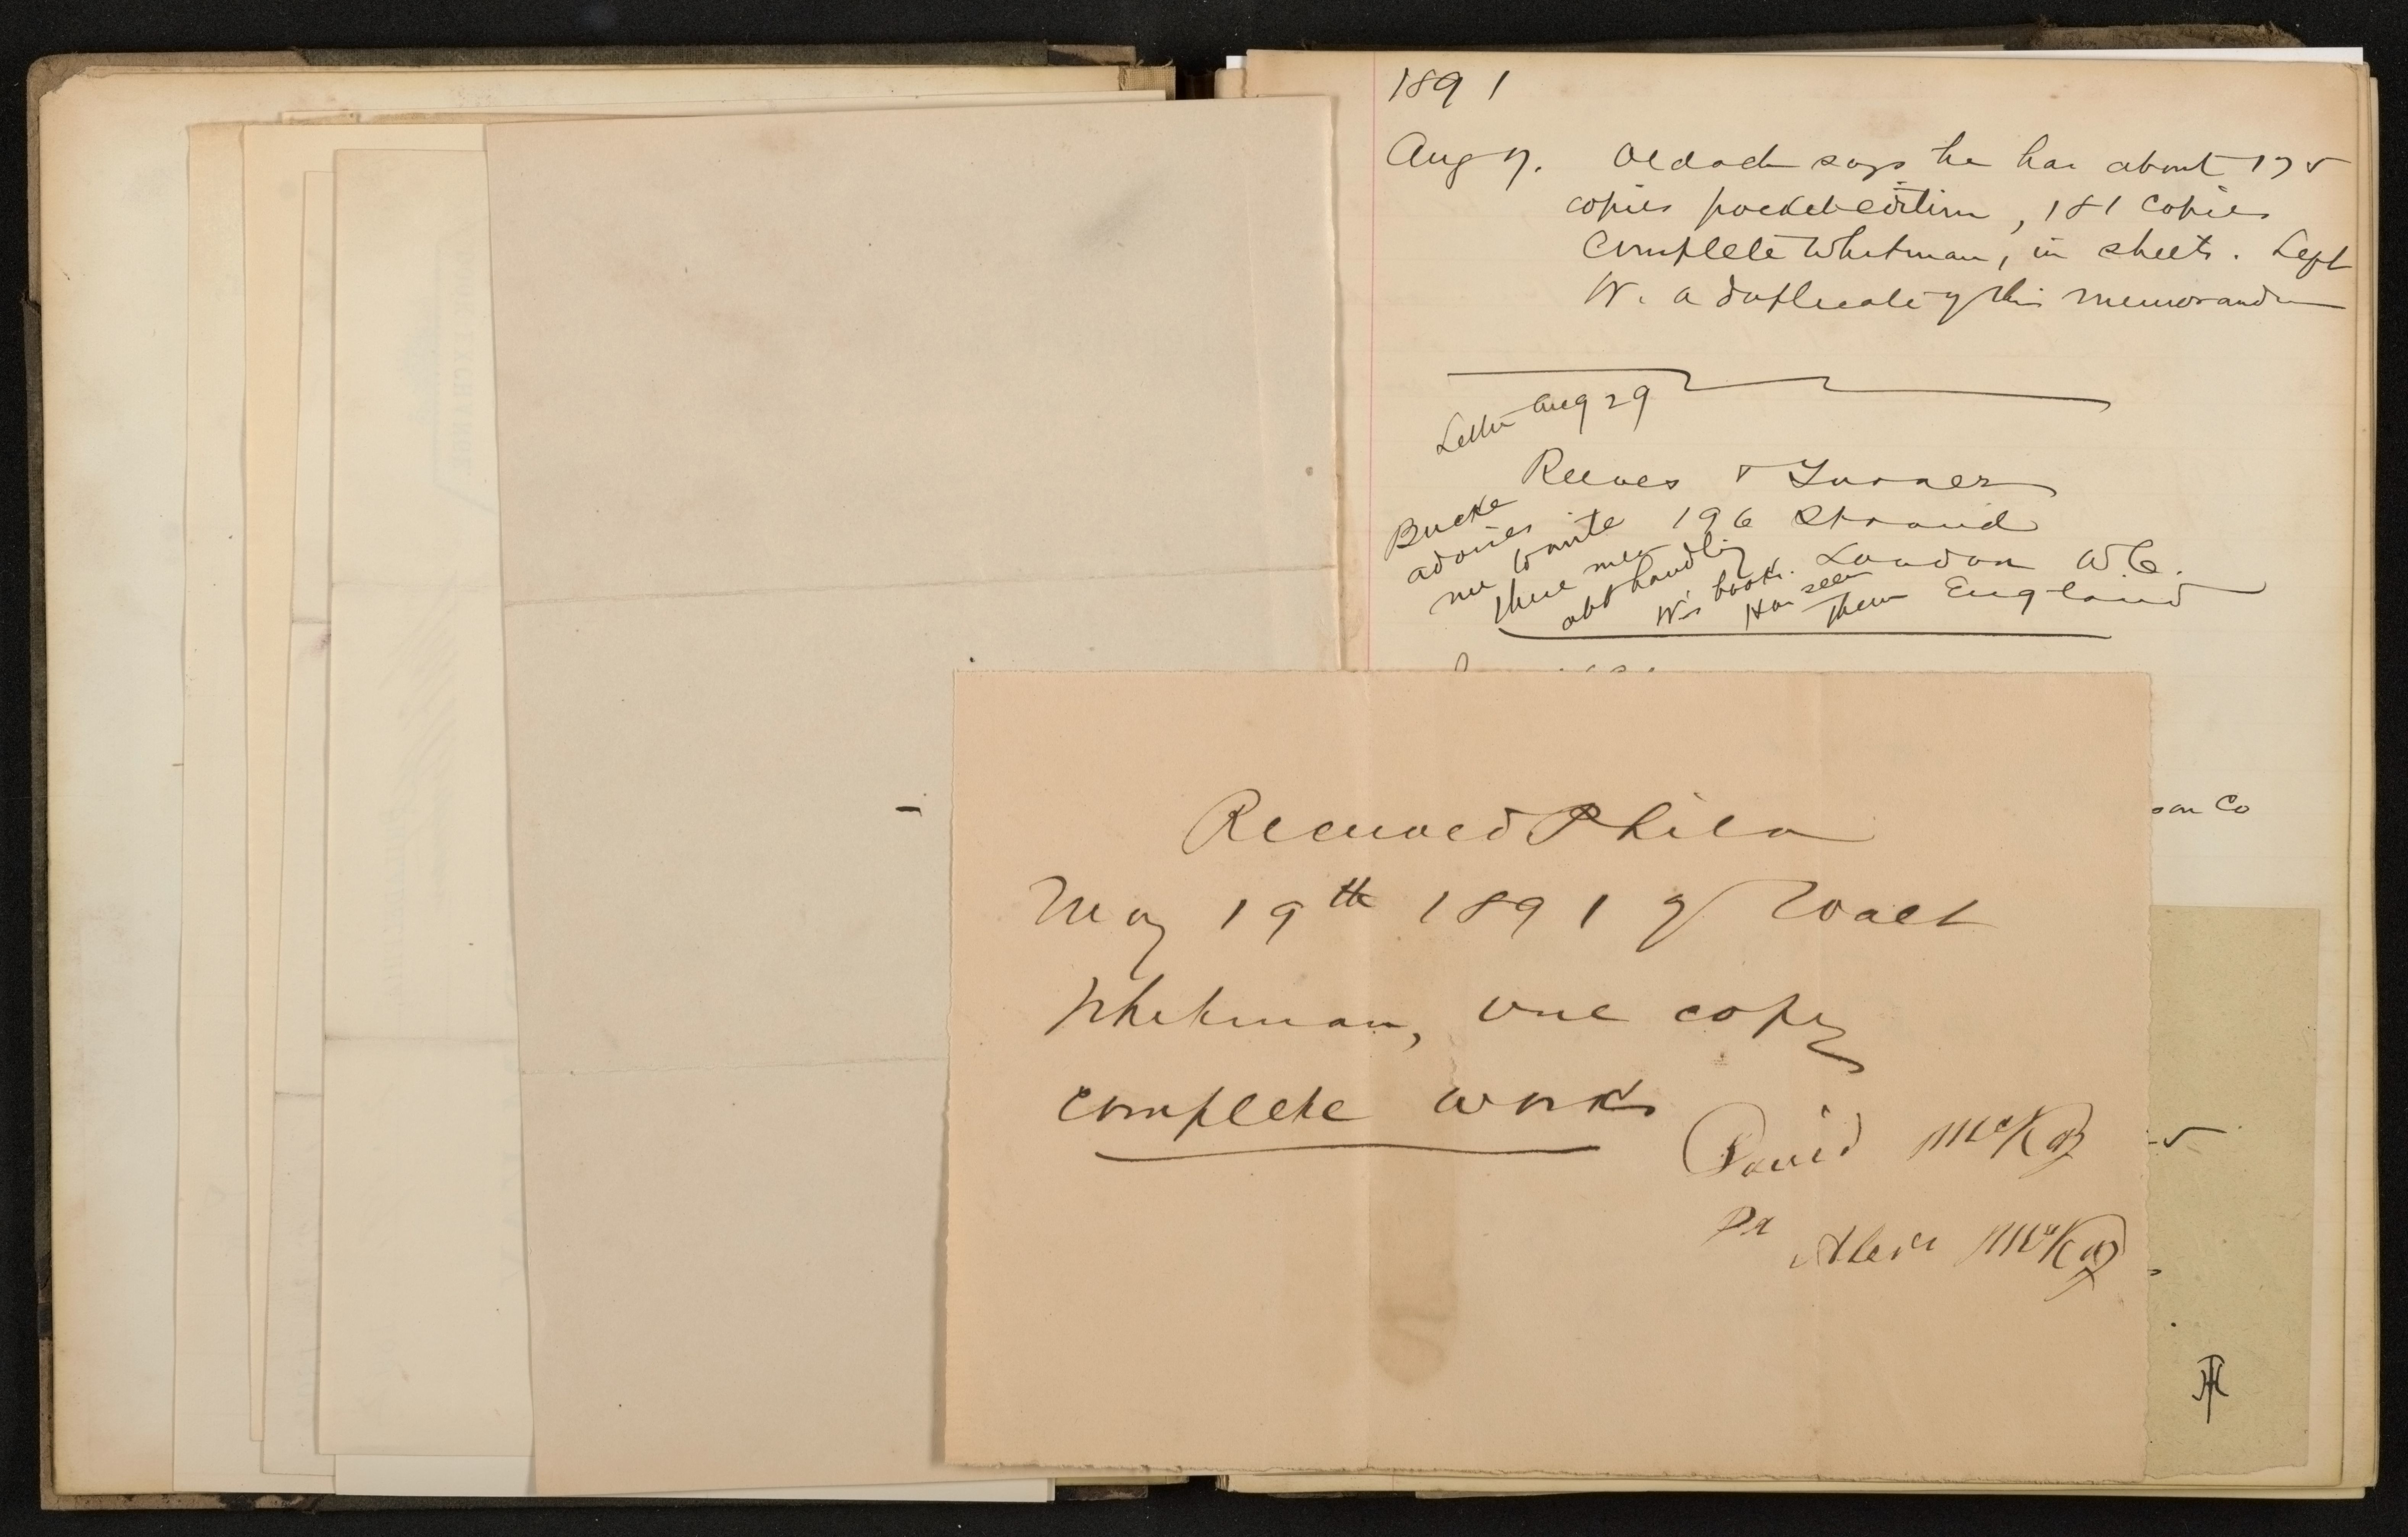 1891
Aug 7. Oldach says he has about 175
copies pocket edition, 181 copies
Complete Whitman, in sheets. Left
W. a duplicate of this memorandum
Letter Aug 29
Reeves & Turner
196 Strand
London W.C.
England
Bucke
advises
me write
there
abt handling
W's book.
Has seen
them
son Co
Received Phila
May 19th 1891 of Walt
Whitman, one copy
complete works
David McKay
Pr Alex McKay